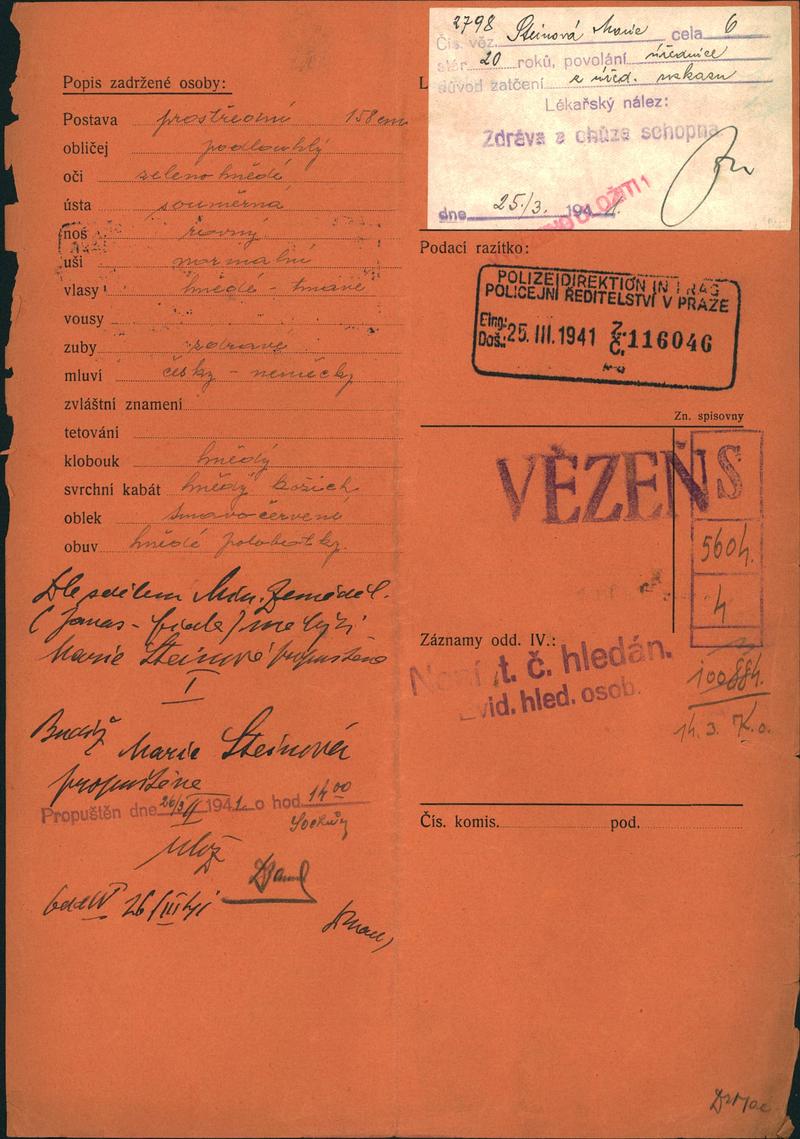 Popis zadržené osoby:
Postava prostřední 158 cm
obličej podlouhlý
oči zelenohnědé
ústa souměrná
nos rovný
uši normální
vlasy hnědé - tmavé
vousy
zuby zdravé
mluví česky - německy
zvláštní znamení
tetování
klobouk hnědý
svrchní kabát hnědý kožich
oblek tmavočervené
obuv hnědé polobotky.
Dle sdělení Min. Zeměděl.
Marie Steinová propuštěna
I
Marie Steinová
propuštěna
II
Propuštěn dne 26/3 1941 o hod. 14 00
26/III 41
2798 Steinová Marie cela 6
Čís. věz.
stár 20 roků, povolání úřednice
důvod zatčení z úřed. vzkazu
Lékařský nález:
Zdráva a chůze schopna
dne 25./3. 1941.
Podací razítko:
POLIZEIDIREKTION IN PRAG
POLICEJNÍ ŘEDITELSTVÍ V PRAZE
Eing.:
Doš.: 25. III. 1941 Z. Č. 116046
Zn. spisovny
VĚZEŇ
S
560h.
4
Záznamy odd. IV.:
Není t. č. hledán.
Evid. hled. osob.
10088h.
14. 3.
Čís. komis. pod.